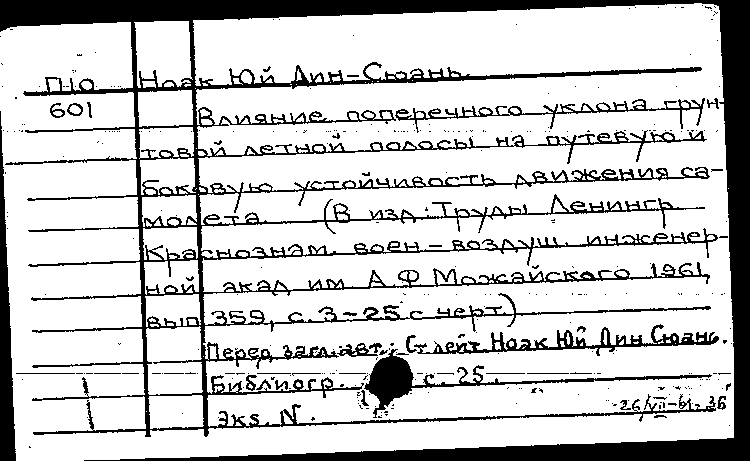 П10 Ноак Юй Дин-Сюань.
601 Влияние поперечного уклона грун-
товой летной полосы на путевую и
боковую устойчивость движения са-
молета. (В изд.: Труды Ленингр.
Краснознам. воен-воздуш. инженер-
ной акад им А.Ф Можайского 1961,
вып 359, с. 3-25 с черт.)
Перед загл. авт.: Ст лейт Ноак Юй Дин Сюань.
Библиогр. с. 25.
Экз. N.